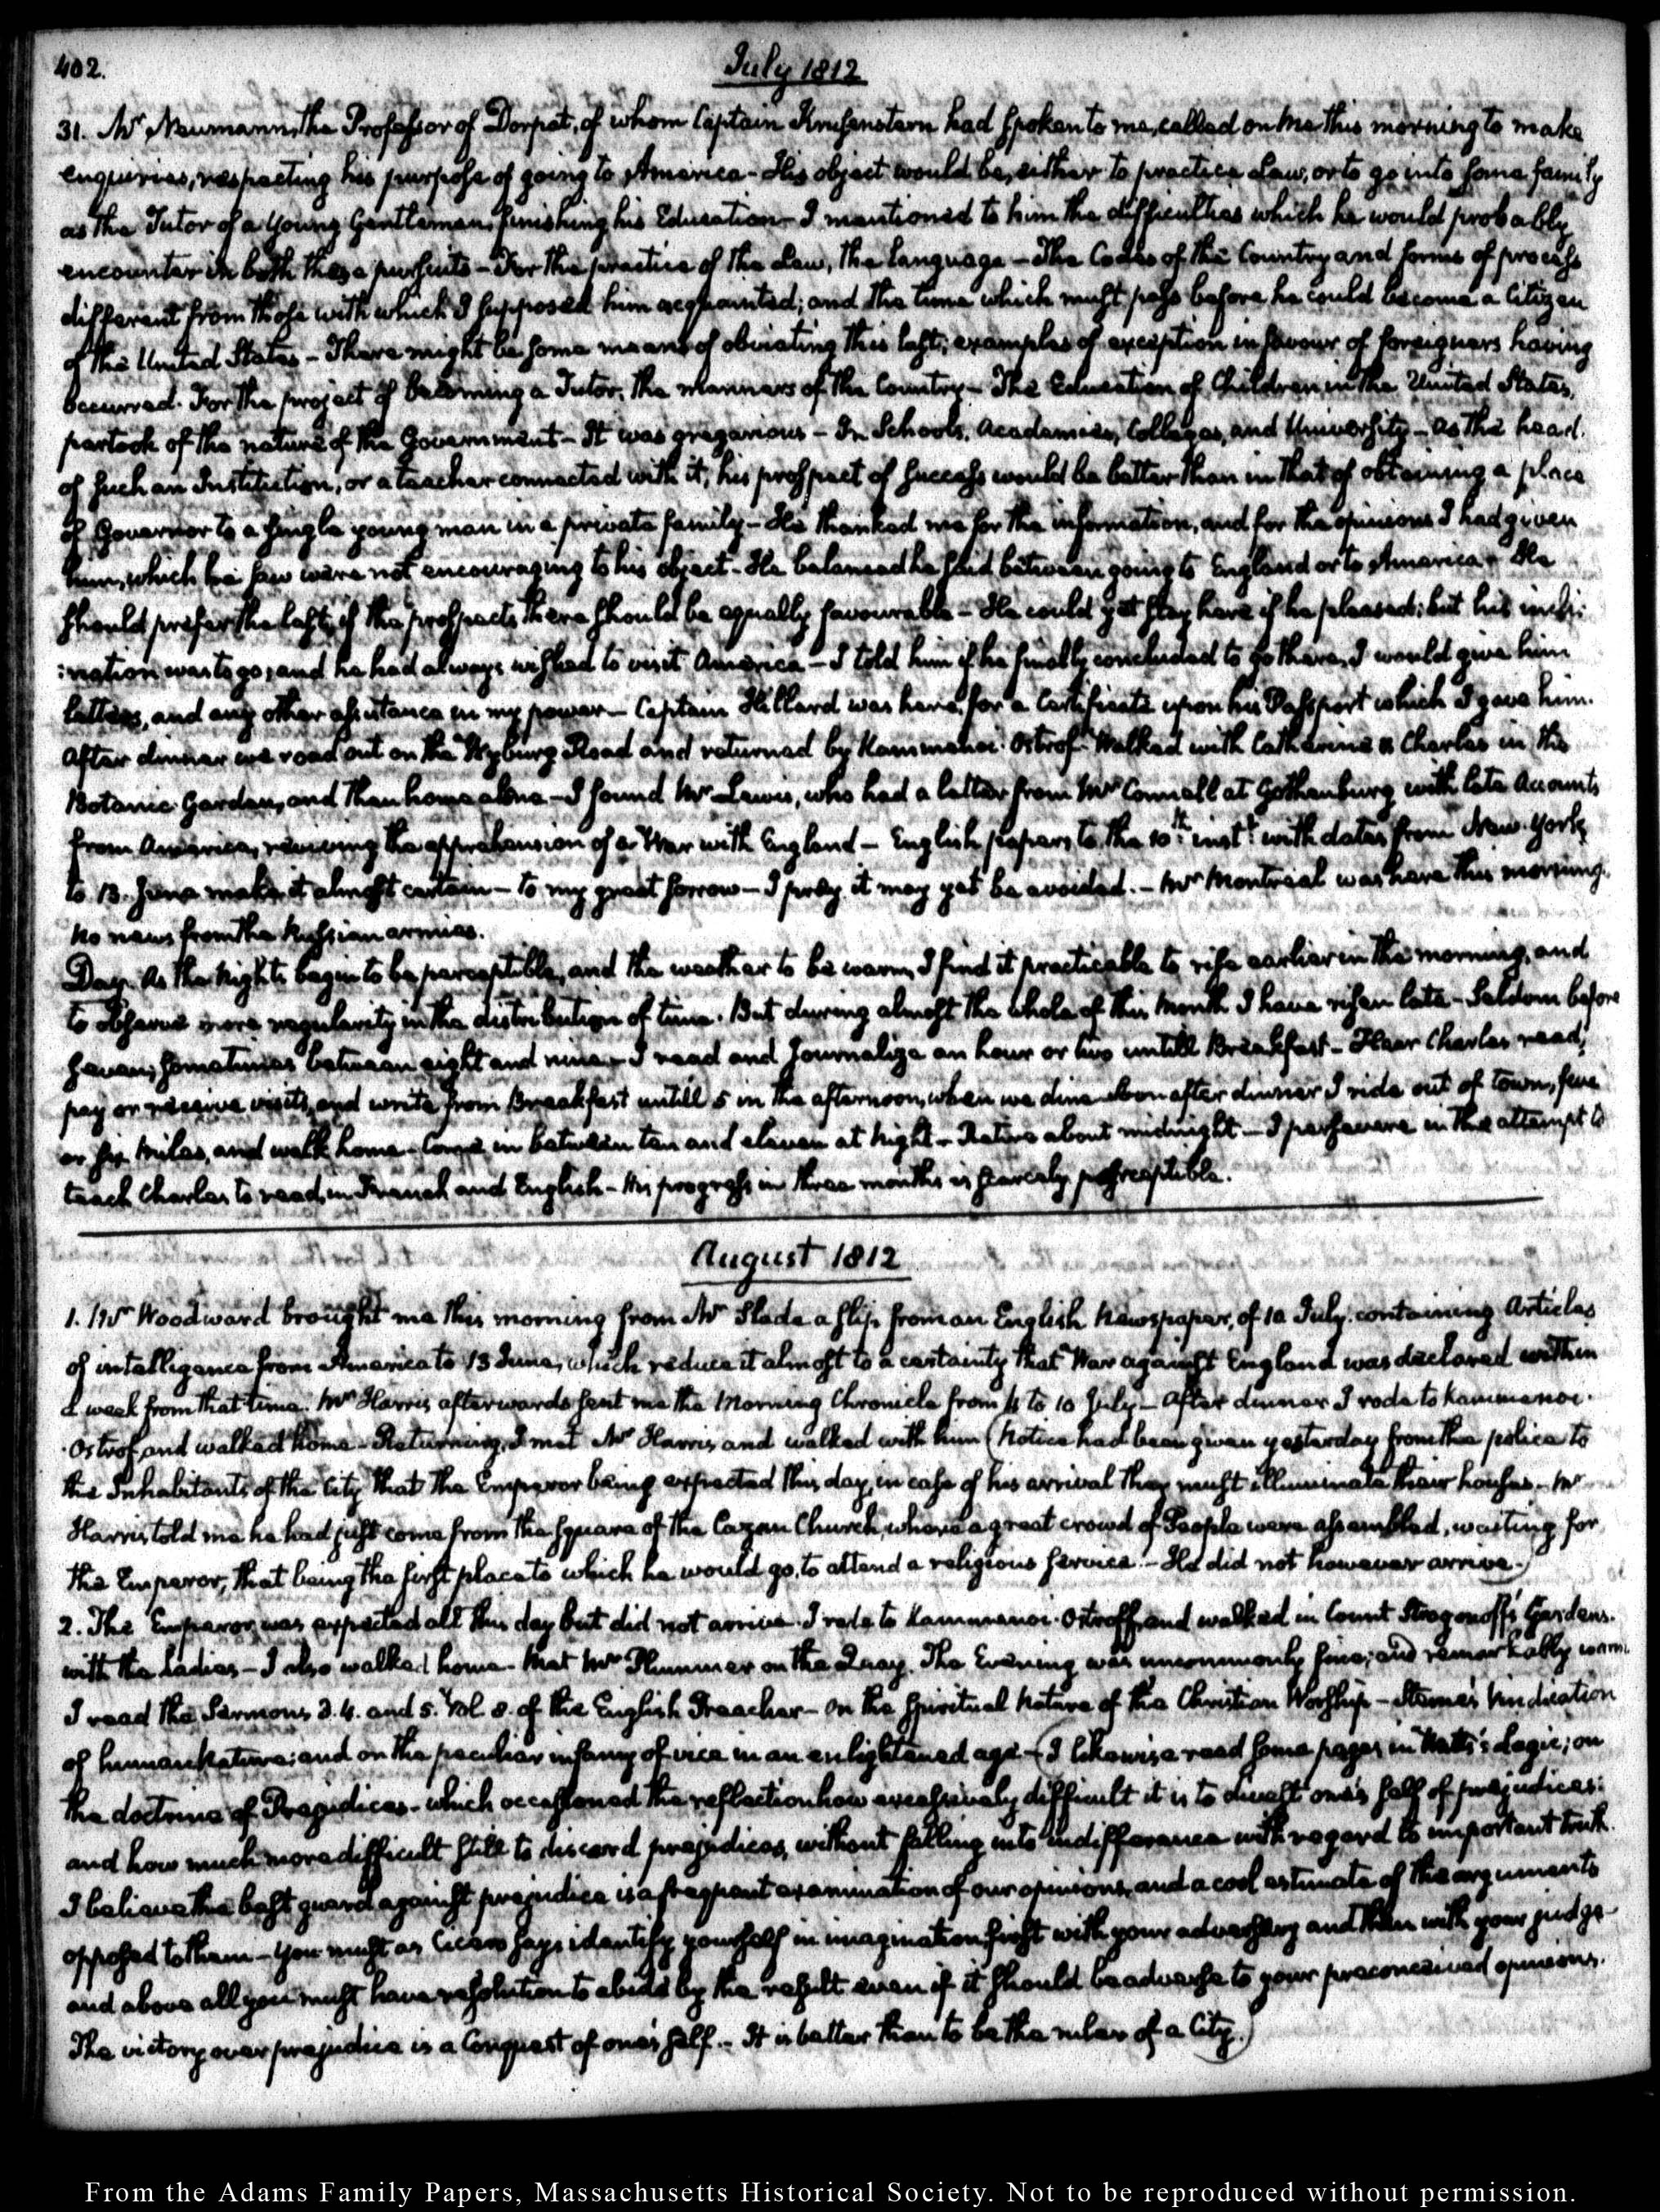 402.
July 1812
31. Mr. Neumann, the Professor of Dorpat, of whom Captain Krusenstern had spoken to me, called on me this morning to make
enquiries, respecting his purpose of going to America - His object would be, either to practice Law, or to go into some family
as the Tutor of a Young Gentleman, finishing his Education - I mentioned to him the difficulties which he would probably
encounter in both these pursuits - For the practice of the Law, the language - The Codes of the Country and forms of process
different from those with which I supposed him acquainted; and the time which must pass before he could become a Citizen
of the United States - There might be some means of obviating this last; examples of exception in favour of foreigners having
occurred. For the project of becoming a Tutor, the manners of the Country - The Education of Children in the United States,
partook of the nature of the Government - It was gregarious - In Schools, Academies, Colleges, and University - As the head
of such an Institution, or a teacher connected with it, his prospect of success would be better than in that of obtaining a place
of Governor to a single young man in a private family - He thanked me for the information, and for the opinions I had given
him, which he saw were not encouraging to his object - He balanced he said between going to England or to America - He
should prefer the last, if the prospects there should be equally favourable - He could yet stay here if he pleased; but his incli:
:nation was to go; and he had always wished to visit America - I told him if he finally concluded to go there, I would give him
letters, and any other assistance in my power - Captain Hillard was here, for a Certificate upon his Passport which I gave him.
After dinner we road out on the Wyburg Road and returned by Kammenoi-Ostrof. Walked with Catherine & Charles in the
Botanic Garden, and then home alone - I found Mr. Lewis, who had a letter from Mr. Connell at Gothenburg with late Accounts
from America, reviving the apprehension of a War with England - English papers to the 10th. inst: with dates from New-York
to 13. June make it almost certain - to my great sorrow - I pray it may yet be avoided. - Mr. Montreal was here this morning.
No news from the Russian armies.
Day. As the nights begin to be perceptible, and the weather to be warm, I find it practicable to rise earlier in the morning, and
to observe more regularity in the distribution of time. But during almost the whole of this Month I have risen late - Seldom before
seven; sometimes between eight and nine - I read and Journalize an hour or two untill Breakfast - Hear Charles read;
pay or receive visits, and write from Breakfast untill 5 in the afternoon, when we dine - Soon after dinner I ride out of town, five
or six miles, and walk home - Come in between ten and eleven at Night - Retire about midnight - I persevere in the attempt to
teach Charles to read, in French and English - His progress in three months is scarcely perceptible.
August 1812
1. Mr. Woodward brought me this morning from Mr. Slade a slip from an English Newspaper, of 10 July containing Articles
of intelligence from America to 13 June, which reduce it almost to a certainty that War against England was declared within
a week from that time. Mr. Harris afterwards sent me the Morning Chronicle from 4 to 10 July - After dinner I rode to Kammenoi-
-Ostrof, and walked home - Returning, I met Mr. Harris and walked with him (Notice had been given yesterday from the police to
the Inhabitants of the City that the Emperor being expected this day, in case of his arrival they must illuminate their houses - Mr.
Harris told me he had just come from the square of the Cazan Church, where a great crowd of People were assembled, waiting for
the Emperor, that being the first place to which he would go, to attend a religious service. - He did not however arrive.)
2. The Emperor was expected all this day but did not arrive. I rode to Kammenoi-Ostroff, and walked in Count Strogonoff's Gardens.
with the Ladies - I also walked home - Met Mr. Plummer on the Quay. The Evening was uncommonly fine, and remarkably warm.
I read the Sermons 3. 4. and 5. Vol 8. of the English Preacher - On the Spiritual Nature of the Christian Worship - Sterne's Vindication
of human Nature: and on the peculiar infamy of vice in an enlightened age - (I likewise read some pages in Watts's Logic; on
the doctrine of Prejudices - which occasioned the reflection how excessively difficult it is to divest one's self of prejudices:
and how much more difficult still to discard prejudices, without falling into indifference with regard to important truth.
I believe the best guard against prejudice is a frequent examination of our opinions, and a cool estimate of the arguments
opposed to them - You must as Cicero says identify yourself in imagination first with your adversary and then with your judge -
and above all you must have resolution to abide by the result even if it should be adverse to your preconceived opinions.
The victory over prejudice is a Conquest of one's self. - It is better than to be the ruler of a City.)
From the Adams Family Papers, Massachusetts Historical Society. Not to be reproduced without permission.